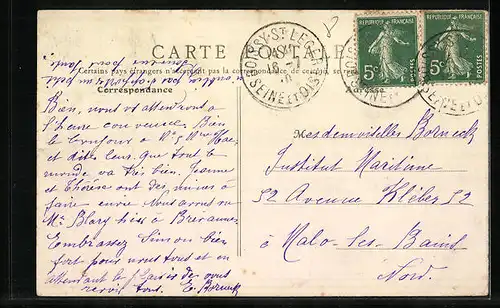 CARTE POSTALE
Certains pays étrangers n'acceptent pas la correspondance de ce côté
Correspondance
Adresse
8
BOISSY-ST-LEGER
18 -1
SEINE ET OISE
REPUBLIQUE FRANÇAISE
5c
POSTES
REPUBLIQUE FRANÇAISE
5c
POSTES
Bien, nous vous attendrons à
l'heure convenue. Bien
le bonjour à Mr & Mme
et dites leur que tout le
monde va très bien. Jeanne
et Thérèse ont des mines à
faire envie. Nous avons vu
Mr Blary hier à Brévannes
Embrassez Simon bien
fort pour nous tous et en
attendant le plaisir de vous
revoir tous. E. Borneck
Mesdemoiselles Borneck
Institut Maritime
52 Avenue Kléber 52
à Malo-les-Bains
Nord.